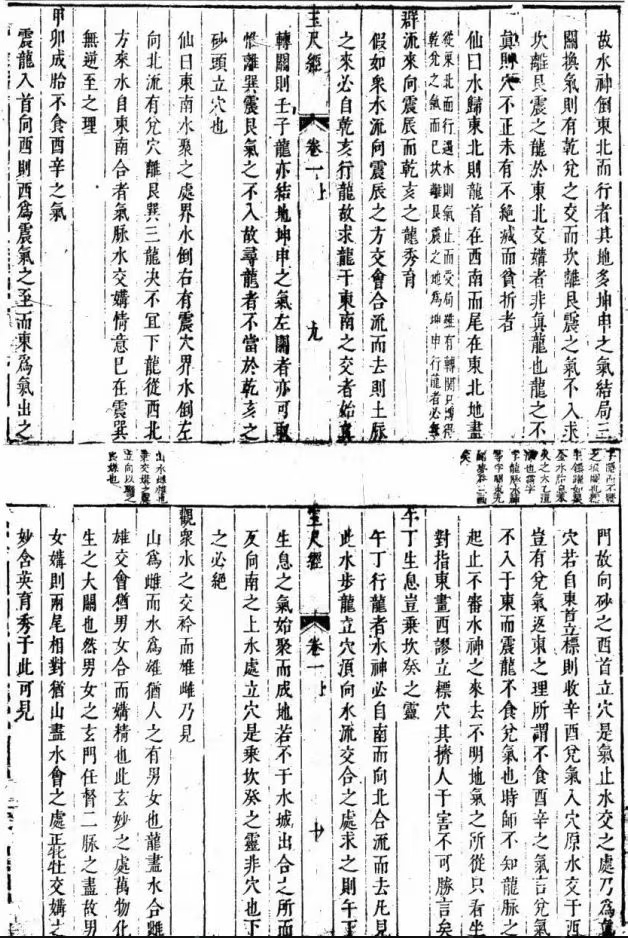 故水神倒東北而行者其地多坤申之氣結局三
關換氣則有乾兌之交而坎離艮震之氣不入求
坎離艮震之龍於東北交媾者非真龍也龍之不
真則穴不正未有不絕滅而貧折者
仙曰水歸東北則龍首在西南而尾在東北地盡
從東北而行遇水則氣止而受局雖有轉關只得
乾兌之氣而已坎離艮震之地為坤申行龍者必無
群流來向震辰而乾亥之龍秀育
假如衆水流向震辰之方交會合流而去則土脉
之來必自乾亥行龍故求龍于東南之交者始真
玉尺經 卷一上 九
轉關則壬子龍亦結地坤申之氣左關者亦可取
惟離巽震艮氣之不入故尋龍者不當於乾亥之
砂頭立穴也
仙曰東南水聚之處界水倒右有震穴界水倒左
向北流有兌穴離艮巽三龍决不宜下龍從西北
方來水自東南合者氣脉水交媾情意已在震巽
無逆至之理
甲卯成胎不食酉辛之氣
震龍入首向西則西為震氣之至而東為氣出之
門故向砂之西首立穴是氣止水交之處乃為真
穴若自東首立標則收辛酉兌氣入穴原水交于西
豈有兌氣返東之理所謂不食酉辛之氣言兌氣
不入于東而震龍不食兌氣也時師不知龍脉之
起止不審水神之來去不明地氣之所從只看坐
對指東畫西謬立標穴其擠人于害不可勝言矣
午丁生息豈乗坎癸之靈
午丁行龍者水神必自南而向北合流而去凡見
此水步龍立穴頂向水流交合之處求之則午丁
玉尺經 卷一上 十
生息之氣始聚而成地若不于水城出合之所而
反向南之上水處立穴是乗坎癸之靈非穴也下
之必絕
觀衆水之交衿而雄雌乃見
山為雌而水為雄猶人之有男女也龍盡水合雌
雄交會猶男女合而媾精也此玄妙之處萬物化
生之大關也然男女之玄門任督二脉之盡故男
女媾則兩尾相對猶山盡水會之處正牝牡交媾之
妙含英育秀于此可見